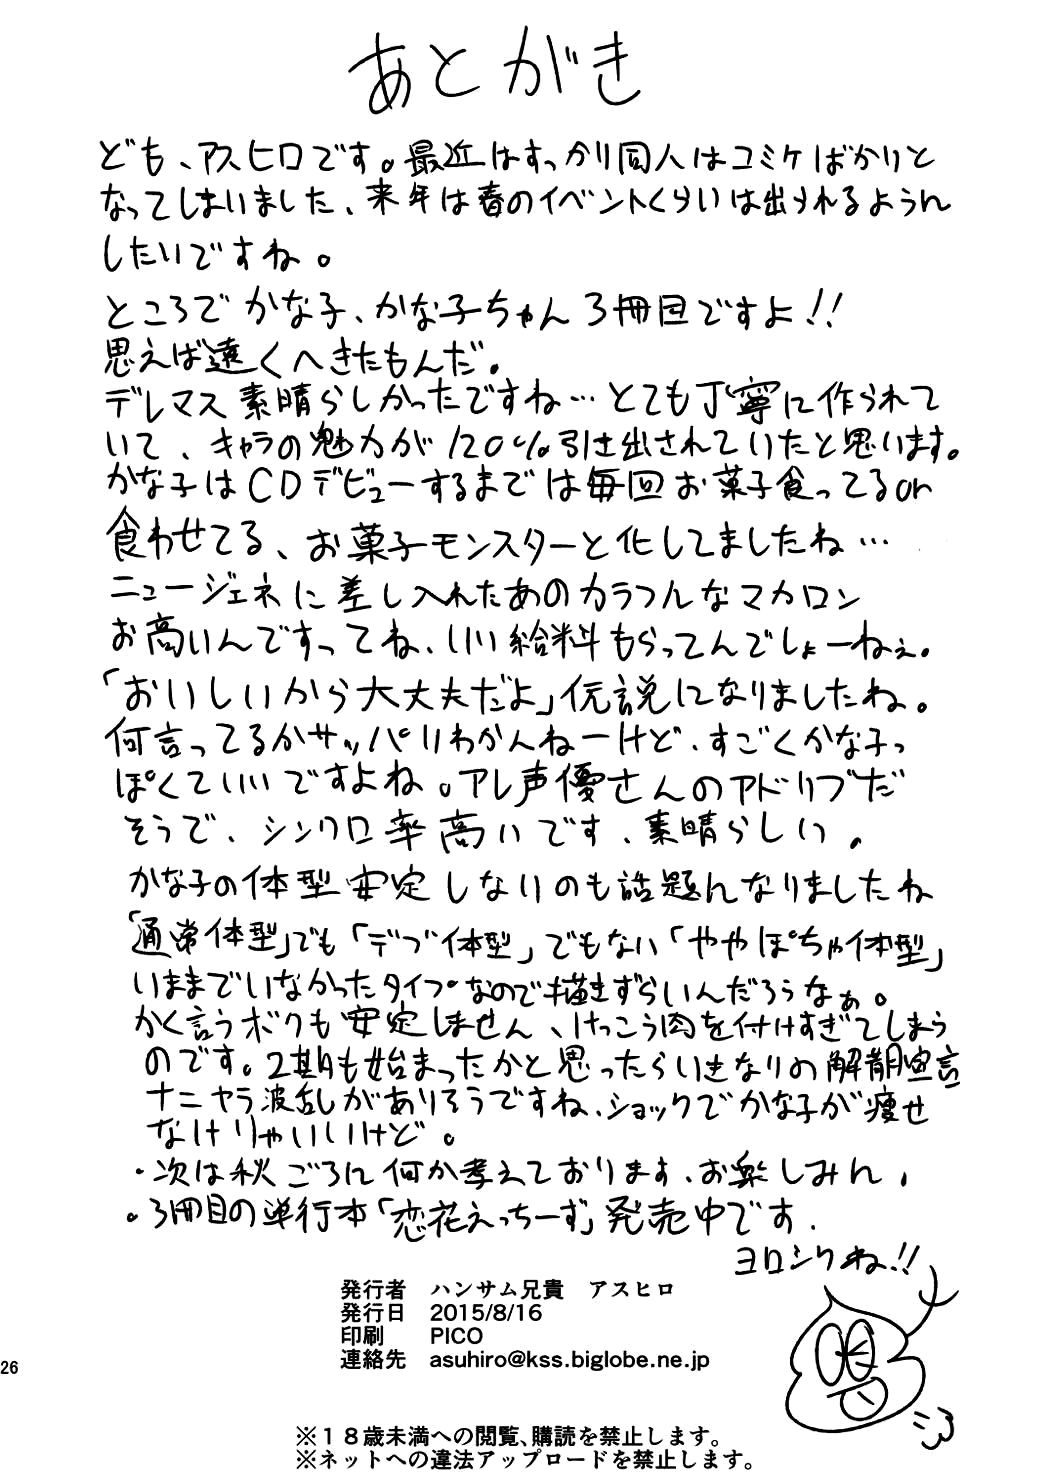 あとがき
ども、アスヒロです。最近はすっかり同人はコミケばかりと
なってしまいました、来年は春のイベントくらいは出られるように
したいですね。
ところでかな子、かな子ちゃん3冊目ですよ!!
思えば遠くへきたもんだ。
デレマス素晴らしかったですね…とても丁寧に作られて
いて、キャラの魅力が120%引き出されていたと思います。
かな子はCDデビューするまでは毎回お菓子食ってるor
食わせてる、お菓子モンスターと化してましたね…
ニュージェネに差し入れたあのカラフルなマカロン
お高いんですってね、いい給料もらってんでしょーねぇ。
「おいしいから大丈夫だよ」伝説になりましたね。
何言ってるかサッパリわかんねーけど、すごくかな子っ
ぽくていいですよね。アレ声優さんのアドリブだ
そうで、シンクロ率高いです、素晴らしい。
かな子の体型安定しないのも話題になりましたね
「通常体型」でも「デブ体型」でもない「ややぽちゃ体型」
いままでいなかったタイプなので描きずらいんだろうなぁ。
かく言うボクも安定しません、けっこう肉を付けすぎてしまう
のです。2期も始まったかと思ったらいきなりの解散宣言
ナニヤラ波乱がありそうですね、ショックでかな子が痩せ
なけりゃいいけど。
・次は秋ごろに何か考えております、お楽しみに。
・3冊目の単行本「恋花えっちーず」発売中です.
ヨロシクね!!
発行者 ハンサム兄貴 アスヒロ
発行日 2015/8/16
印刷 PICO
連絡先 asuhiro@kss.biglobe.ne.jp
26
※１８歳未満への閲覧、購読を禁止します。
※ネットへの違法アップロードを禁止します。